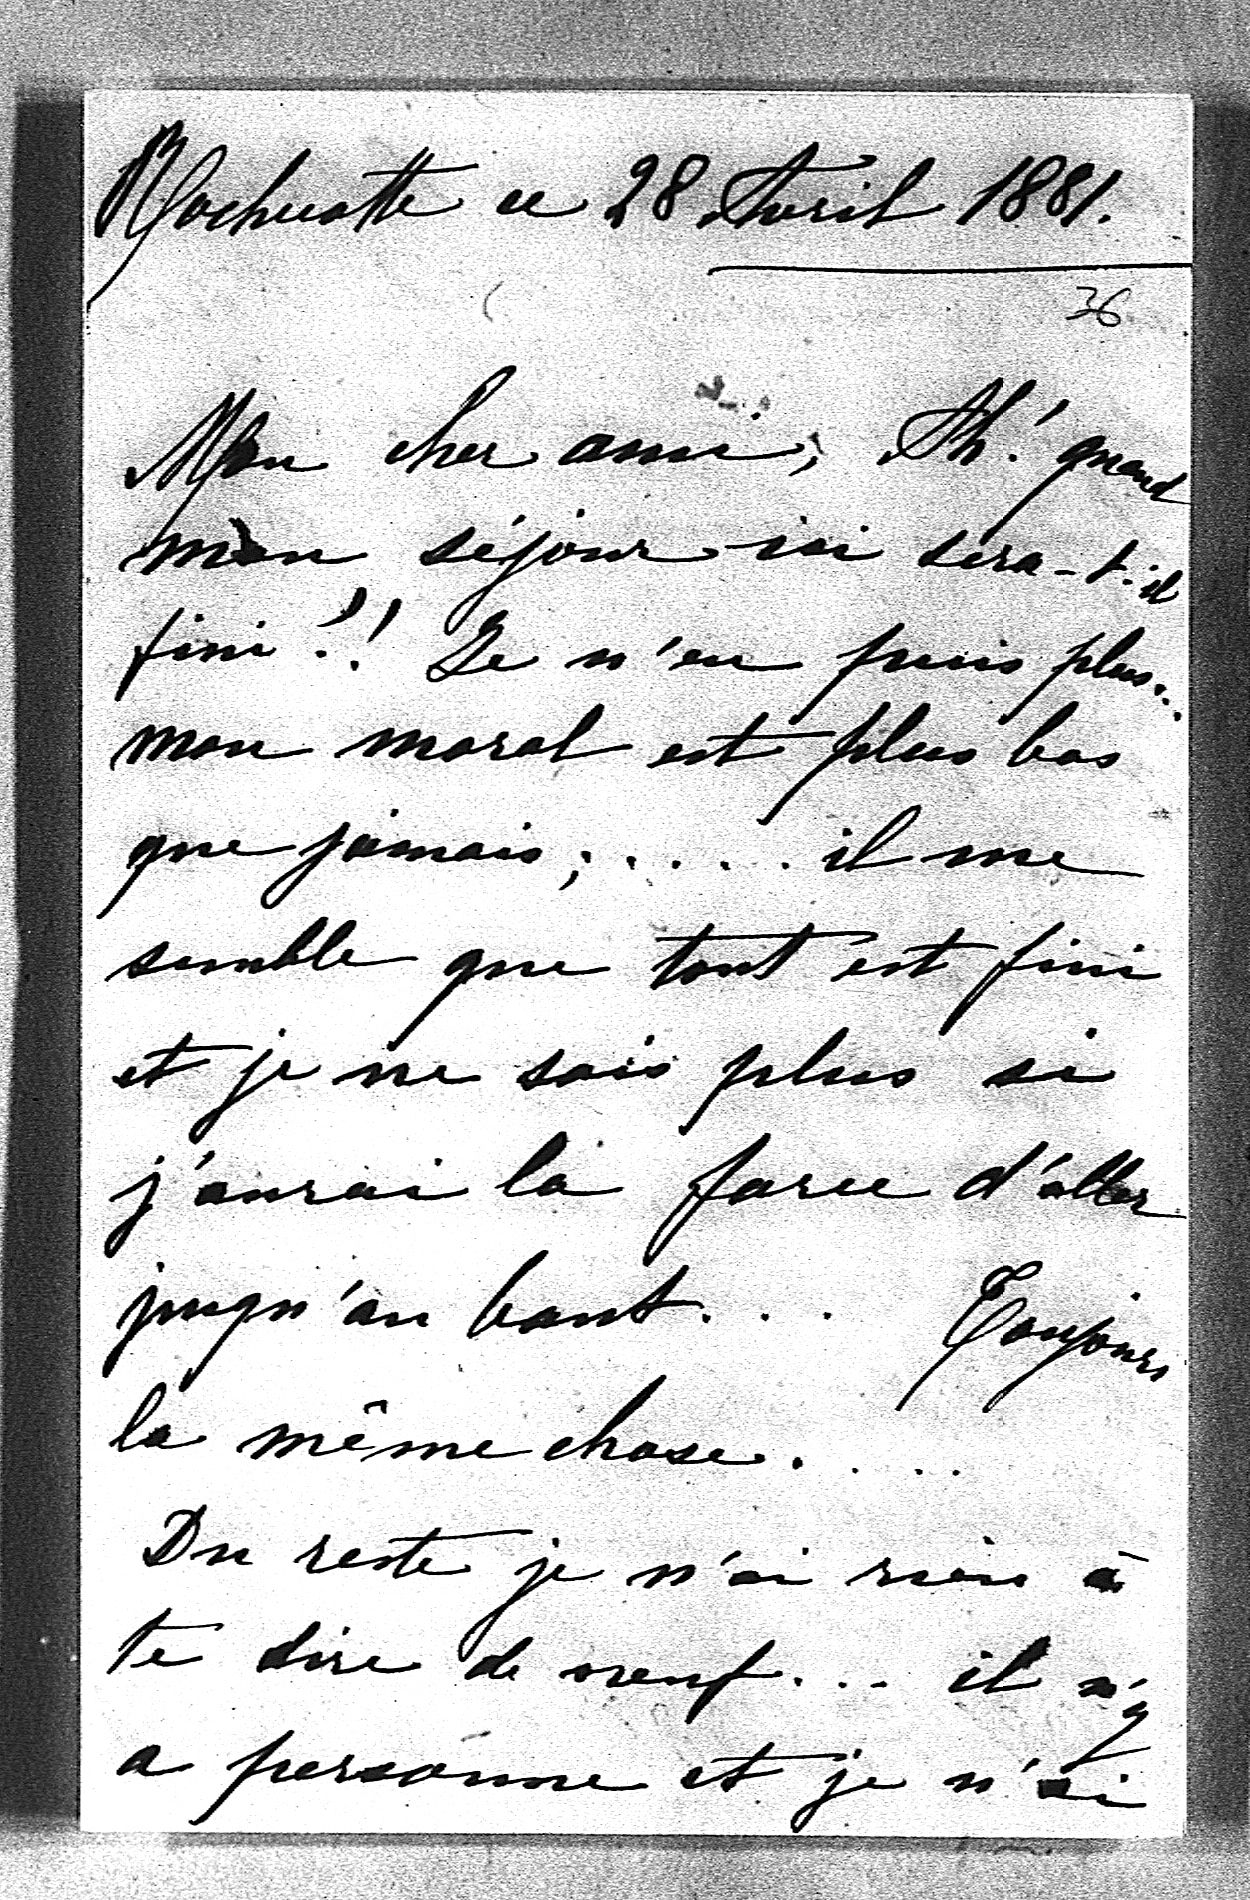 Rochecotte ce 28 Avril 1881.
36
Mon cher ami, Ah! quand
mon séjour ici sera-t-il
fini!! Je n'en puis plus...
mon moral est plus bas
que jamais;..... il me
semble que tout est fini
et je ne sais plus si
j'aurai la force d'aller
jusqu'au bout... Toujours
la même chose.....
Du reste je n'ai rien à
te dire de neuf... il n'y
a personne et je n'ai